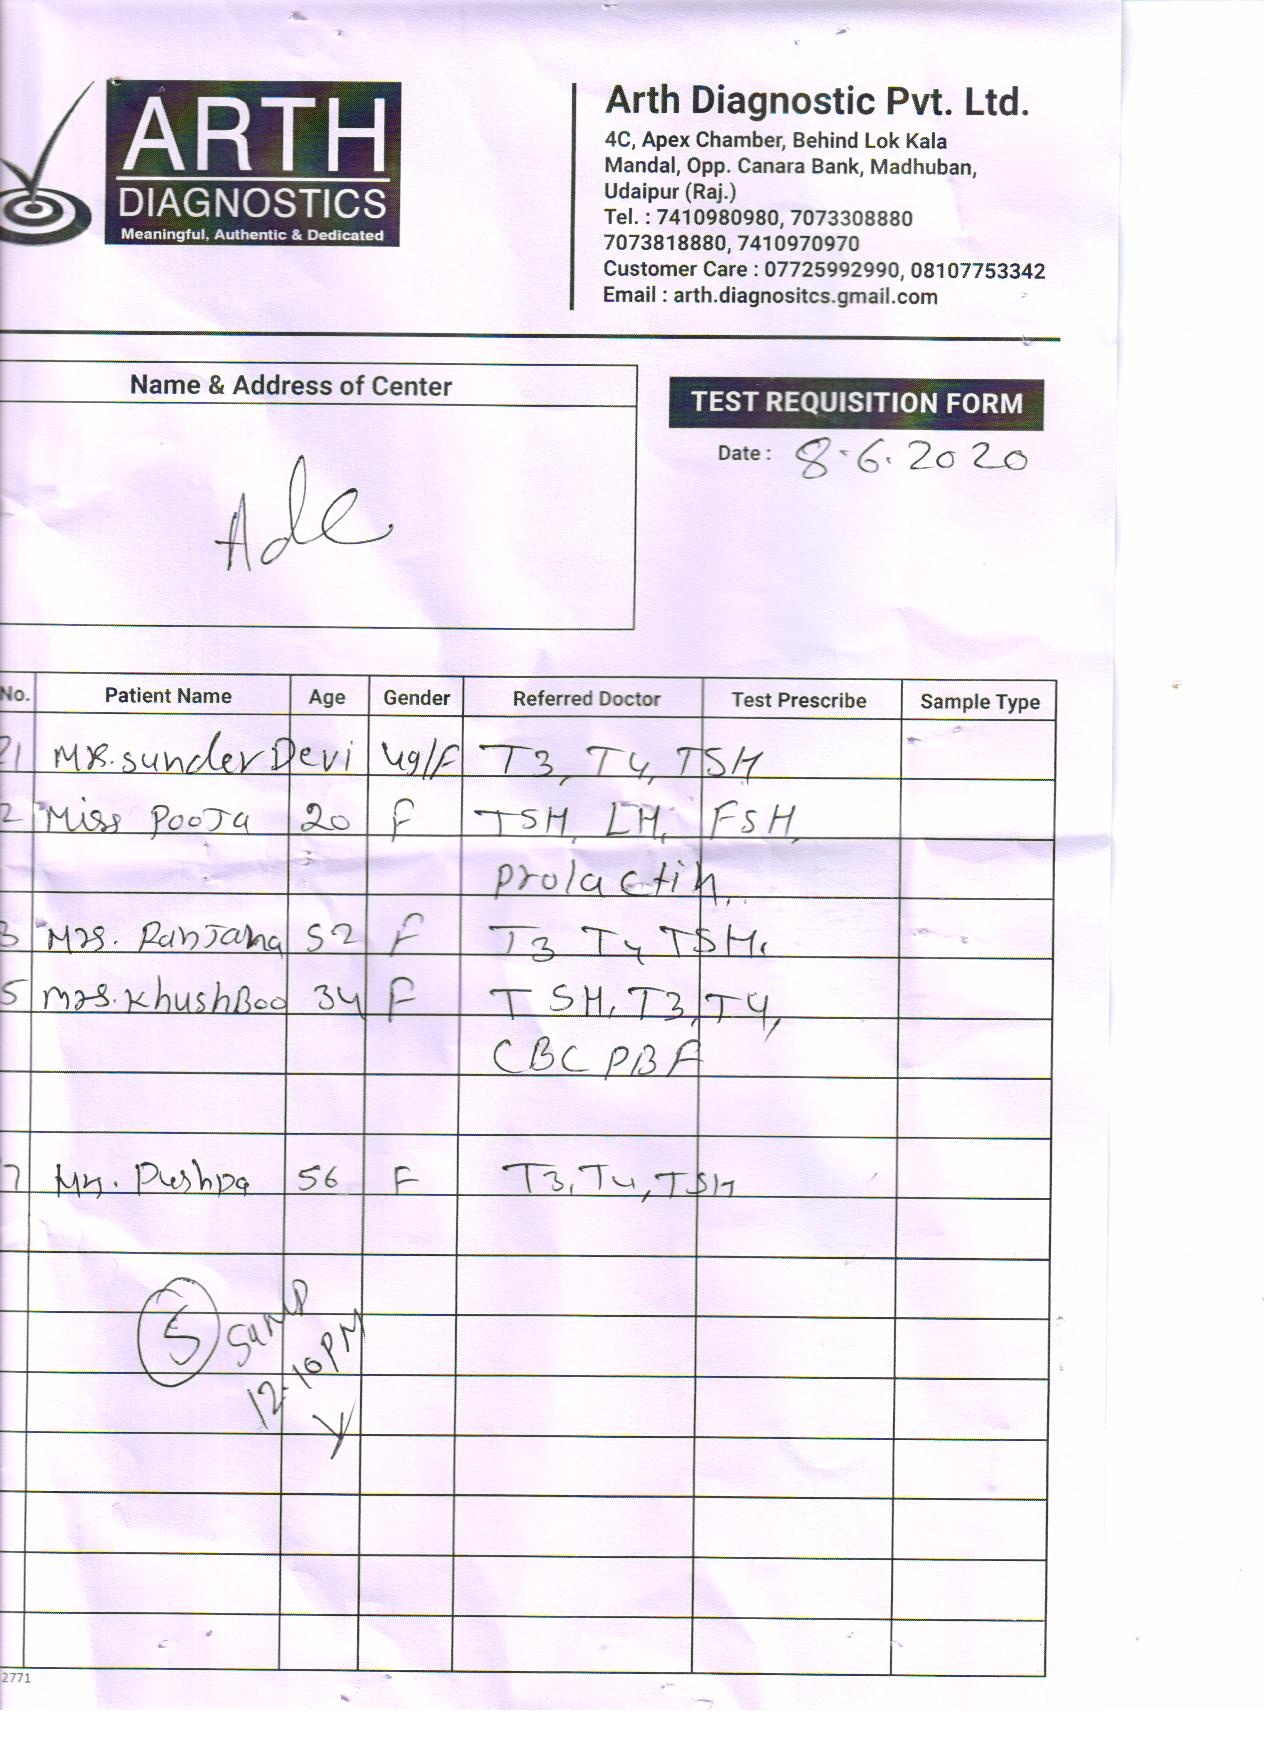 ARTH
DIAGNOSTICS
Meaningful, Authentic & Dedicated
Arth Diagnostic Pvt. Ltd.
4C, Apex Chamber, Behind Lok Kala
Mandal, Opp. Canara Bank, Madhuban,
Udaipur (Raj.)
Tel. : 7410980980, 7073308880
7073818880, 7410970970
Customer Care : 07725992990, 08107753342
Email : arth.diagnositcs.gmail.com
Name & Address of Center
TEST REQUISITION FORM
Date : 8.6.2020
No. Patient Name Age Gender Referred Doctor Test Prescribe Sample Type
sunder Devi 49/F T3, T4, TSH
2 Miss Pooja 20 F TSH, LH, FSH,
prolactin,
3 Mrs. Ranjana 52 F T3 T4 TSH,
5 Mrs. KhushBoo 34 F TSH, T3, T4,
CBC PBF
7 Pushpa 56 F T3, T4, TSH
5
12.10PM
2771